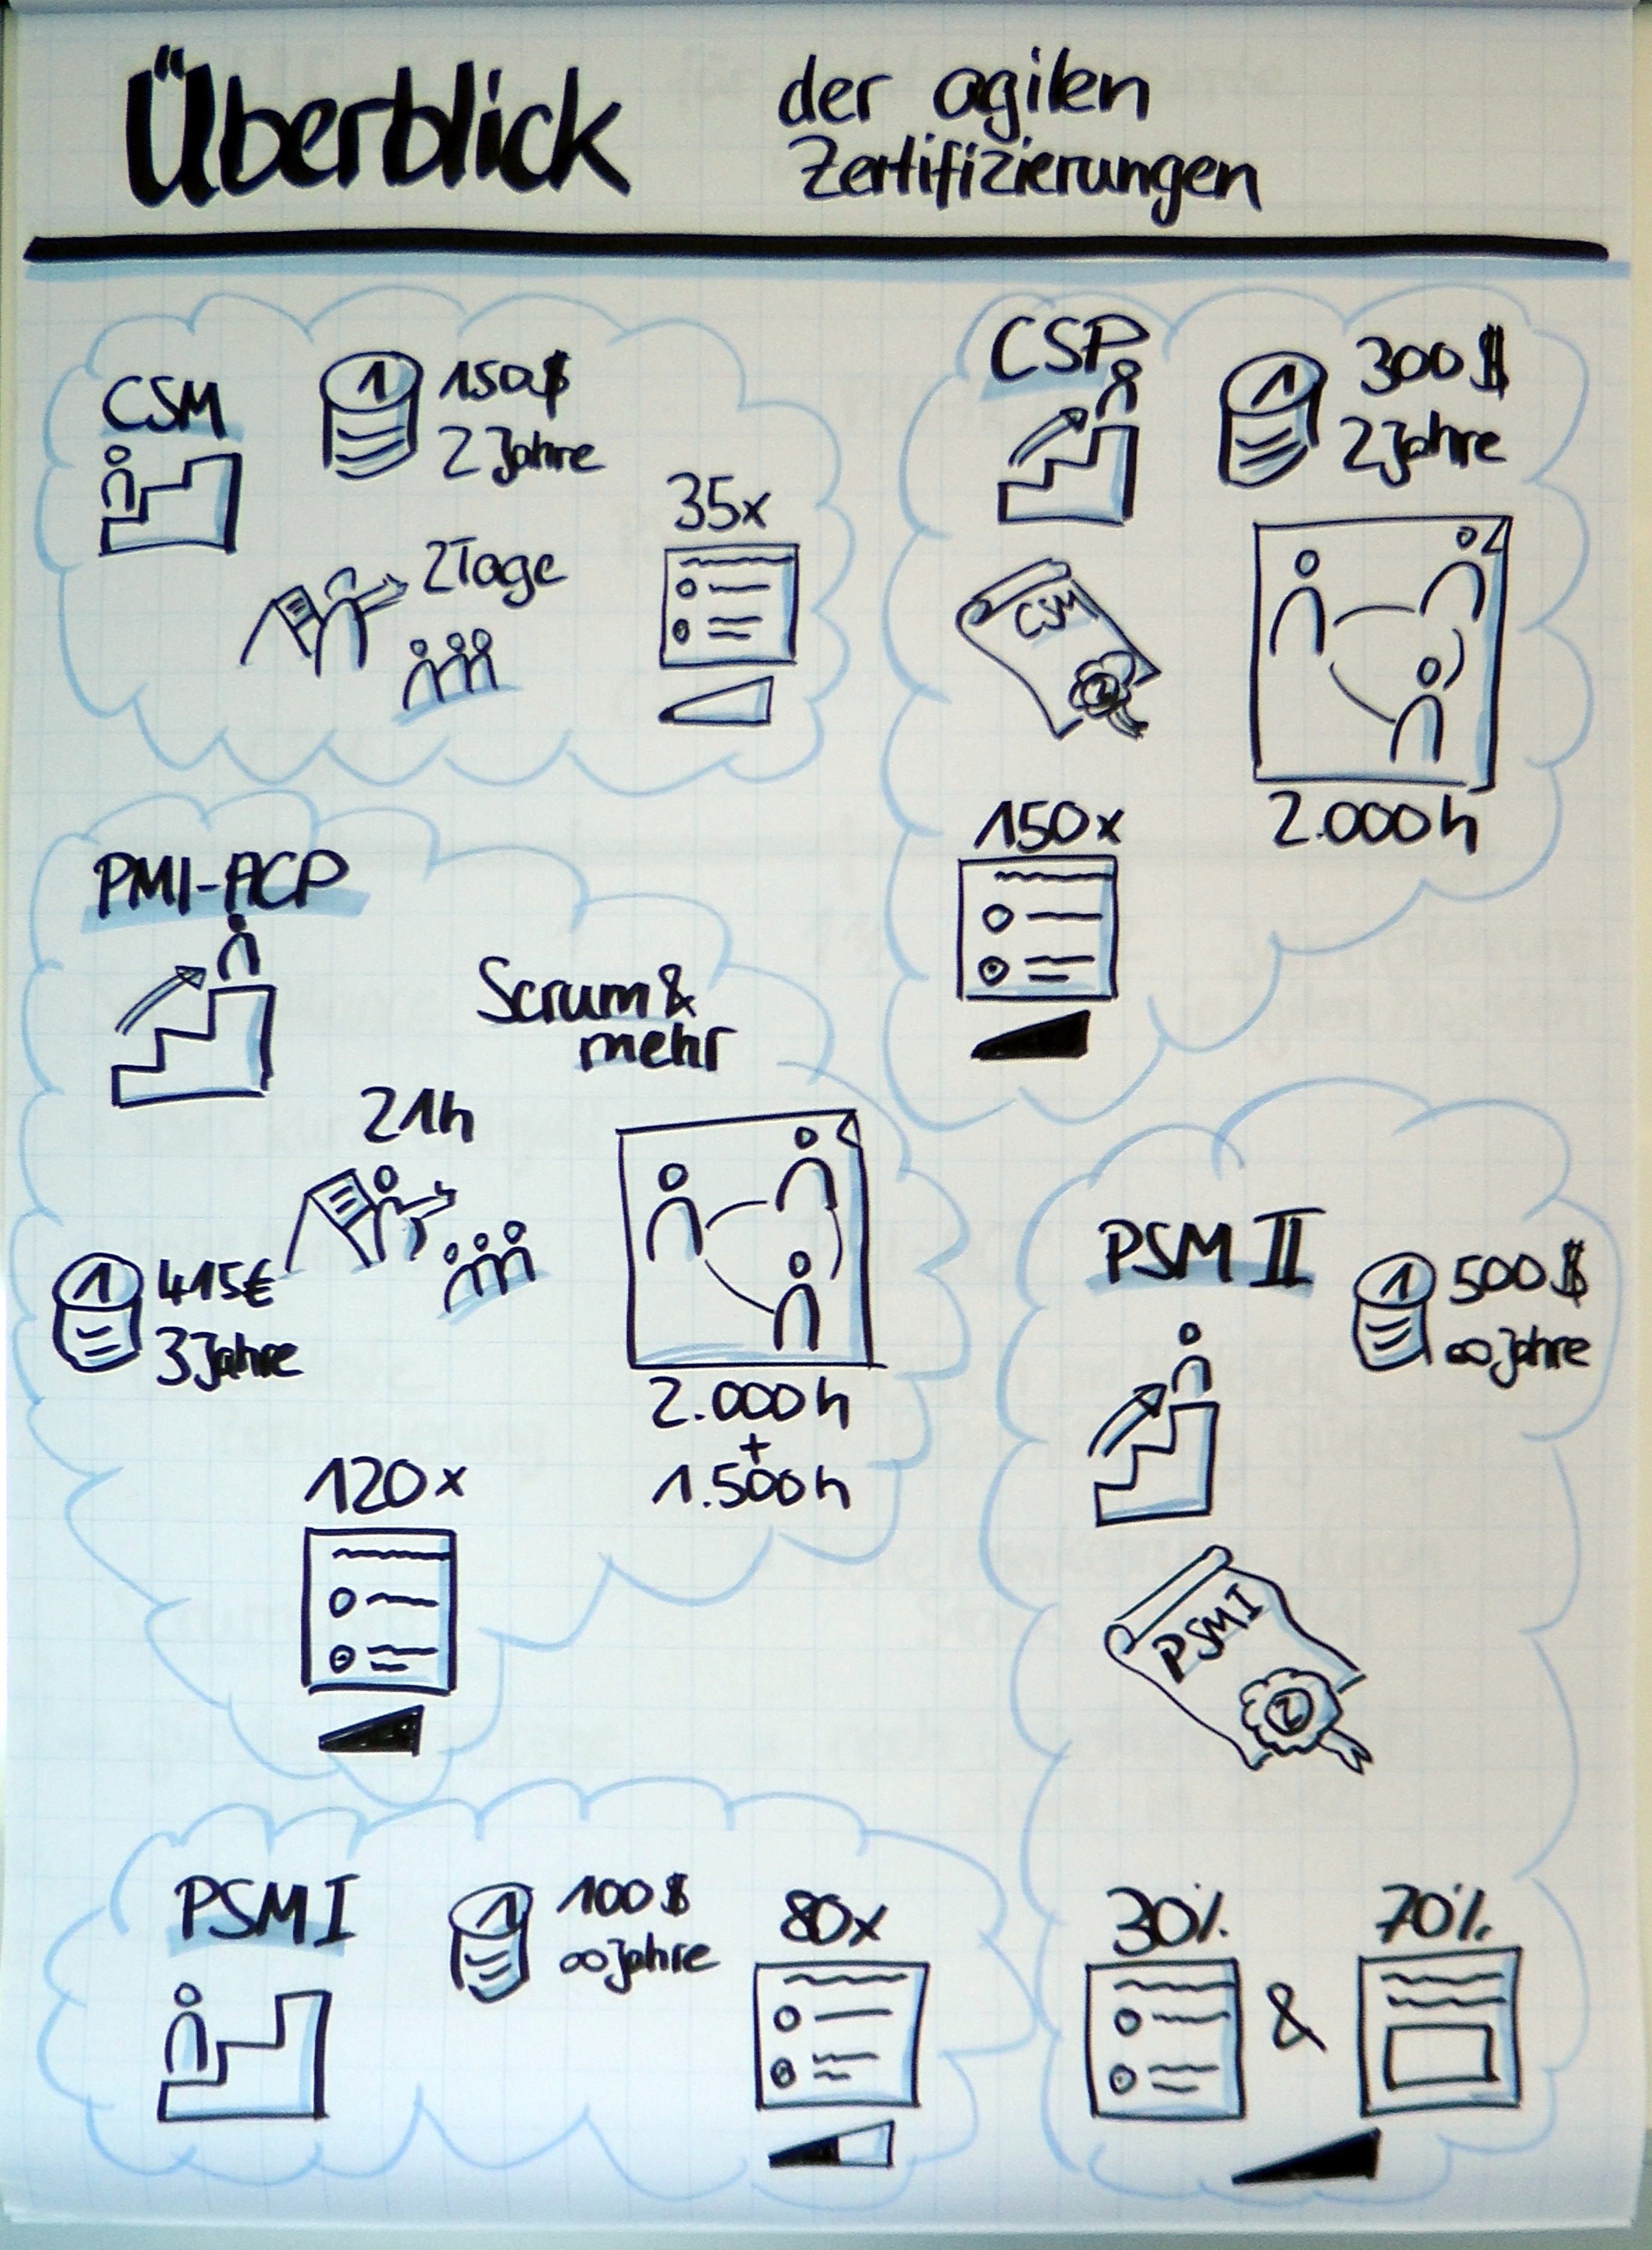 Überblick
der agilen
Zertifizierungen
CSM
1
150$
2 Jahre
2 Tage
35x
CSP
1
300$
2 Jahre
CSM
2.000h
150x
PMI-ACP
Scrum &
mehr
21h
1
415€
3 Jahre
2.000h
+
1.500h
120x
PSM II
1
500$
∞ Jahre
PSM I
2
PSM I
1
100$
∞ Jahre
80x
30%
&
70%